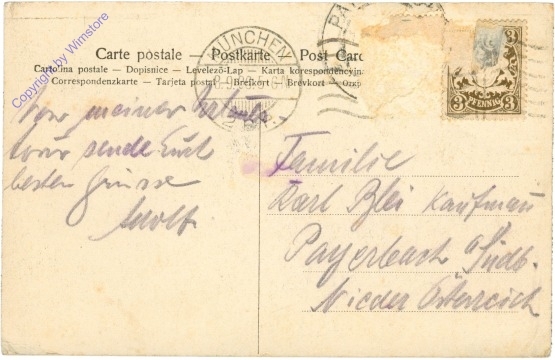 Carte postale — Postkarte — Post Card
Cartolina postale — Dopisnice — Levelező-Lap — Karta korespondencyjna
Correspondenzkarte — Tarjeta postal — Brefkort — Brevkort
MÜNCHEN
3 3
PFENNIG
Copyright by Winstore
Von meiner
tour sende Euch
besten Grüsse
Adolf.
Familie
Karl Blei Kaufmann
Payerbach a/Südb.
Nieder Österreich